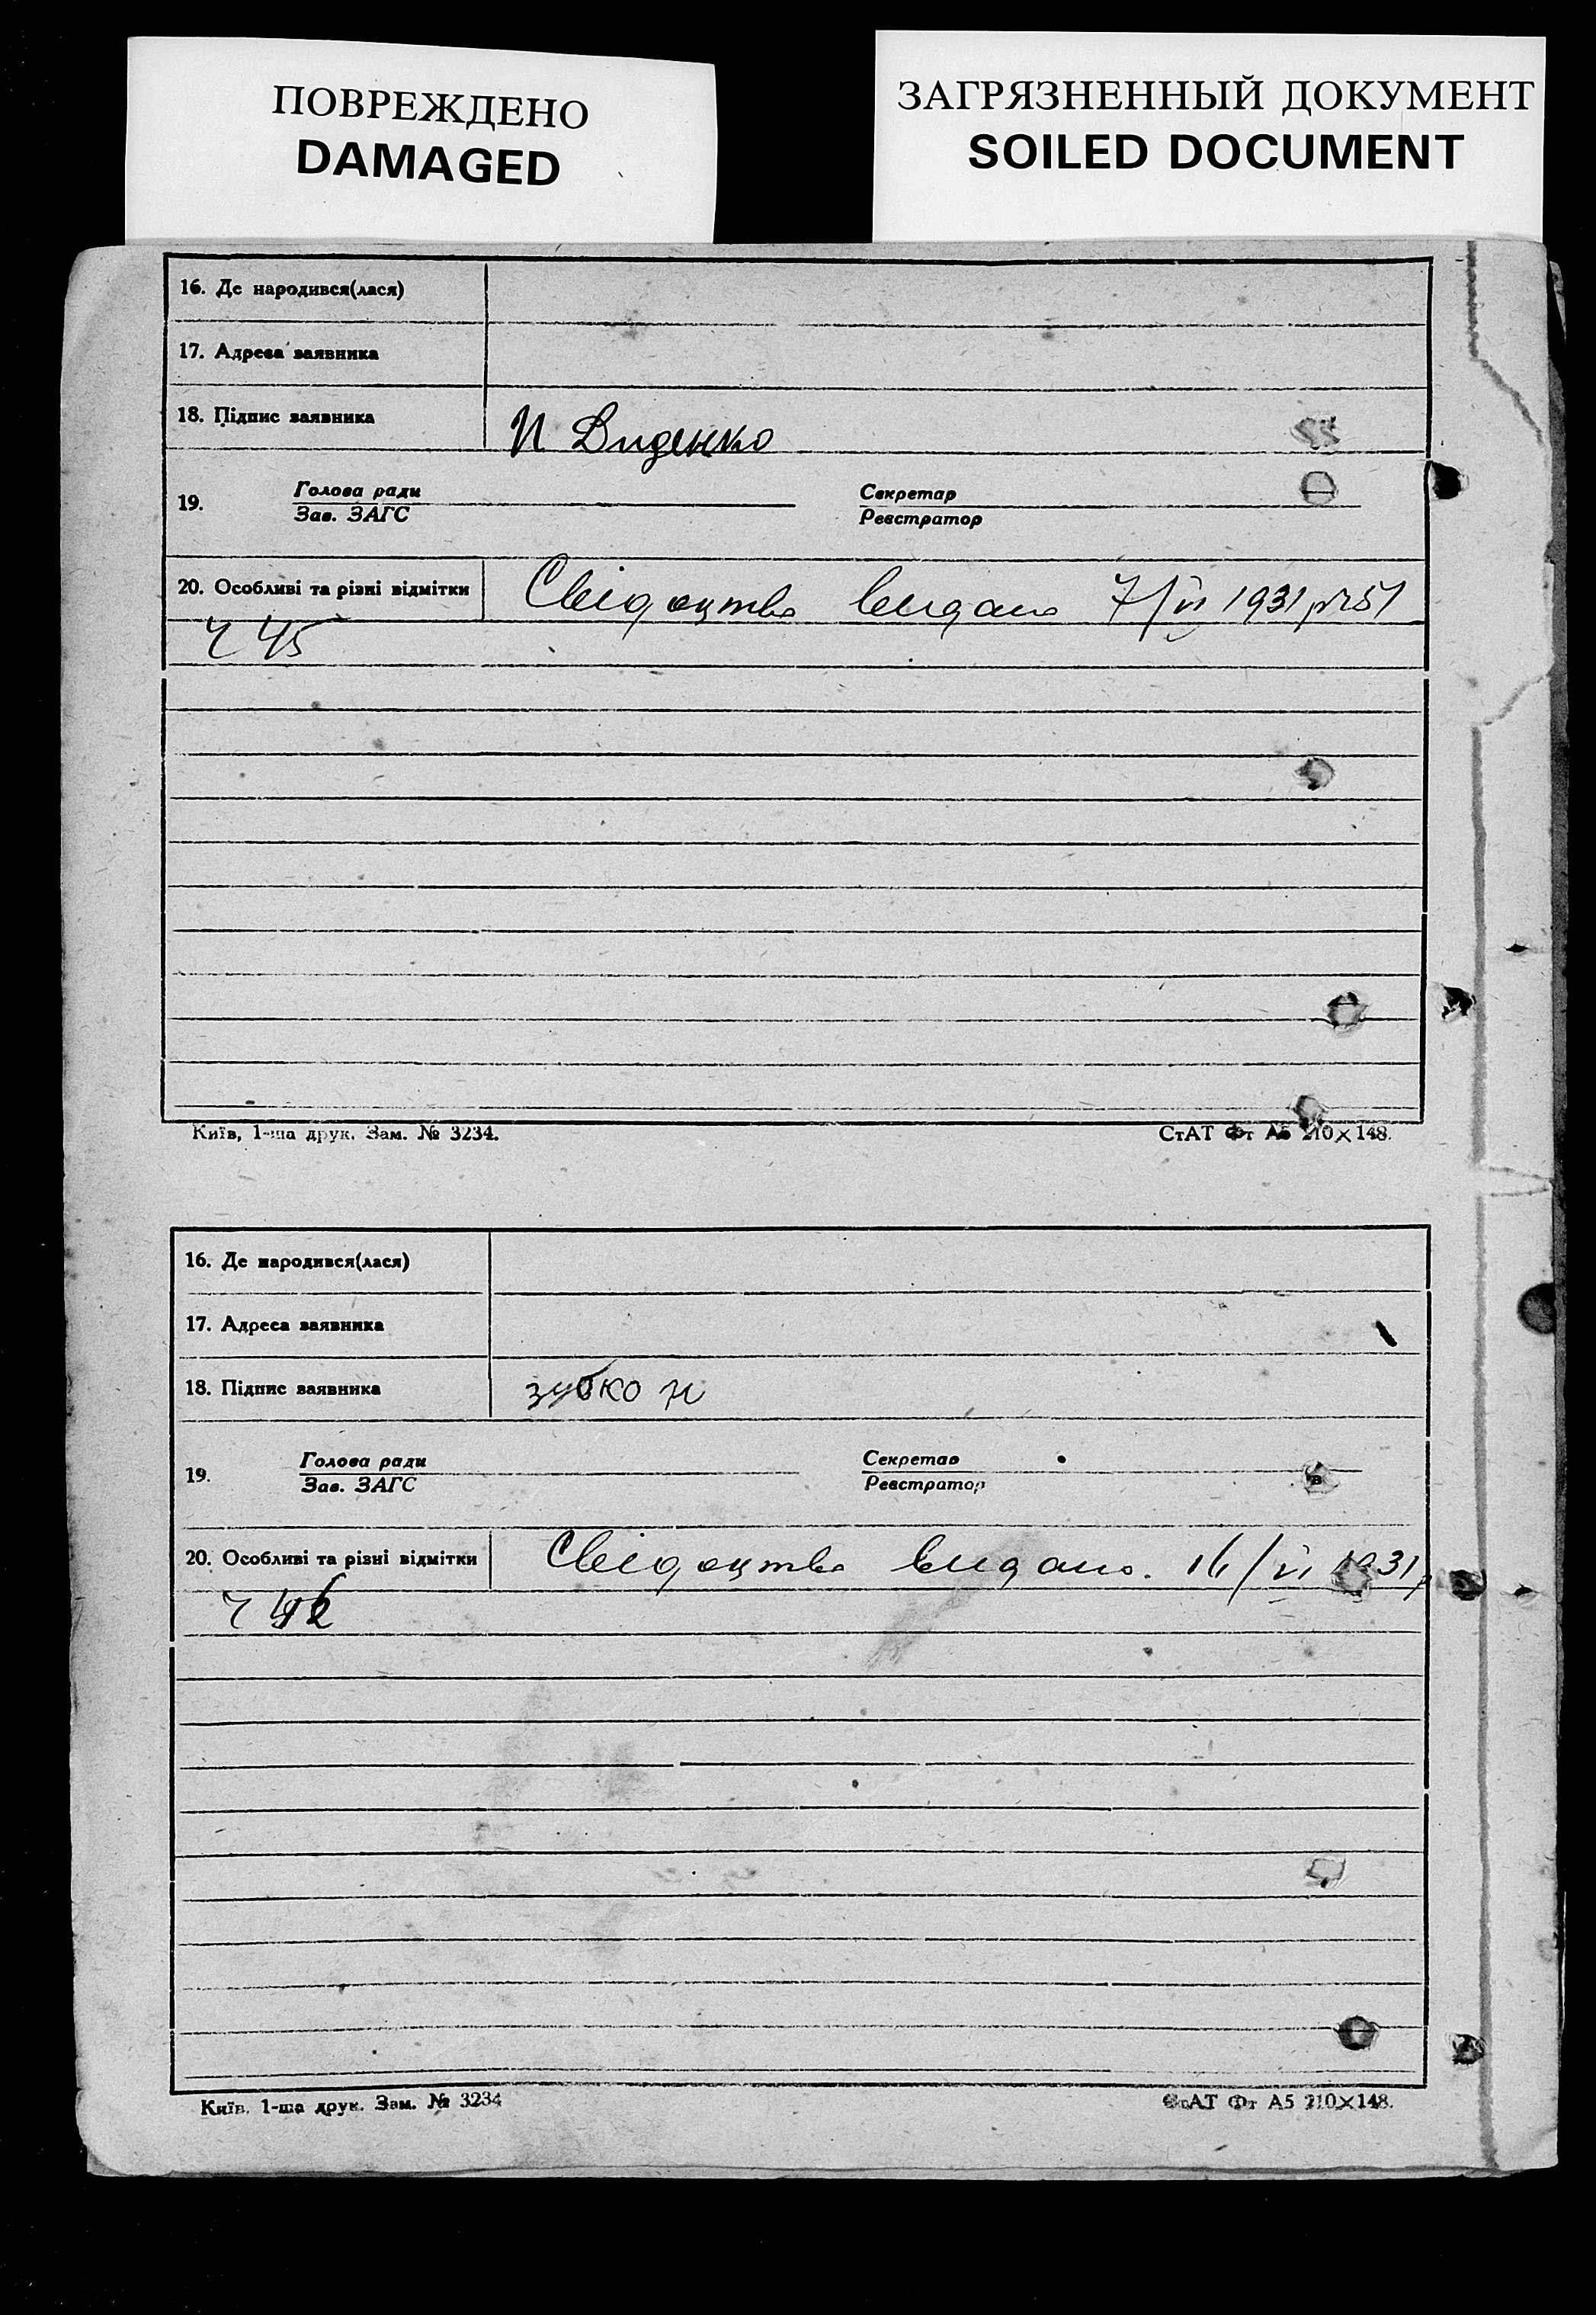 ПОВРЕЖДЕНО
DAMAGED
ЗАГРЯЗНЕННЫЙ ДОКУМЕНТ
SOILED DOCUMENT
16. Де народився(лася)
17. Адреса заявника
18. Підпис заявника И Диденко
19. Голова ради Секретар
Зав. ЗАГС Реєстратор
20. Особливі та різні відмітки Свідоцтво видано 7/VI 1931р №51
Ч 45
Київ, 1-ша друк. Зам. № 3234. СтАТ Фт А5 210×148.
16. Де народився(лася)
17. Адреса заявника
18. Підпис заявника зубко н
19. Голова ради Секретар
Зав. ЗАГС Реєстратор
20. Особливі та різні відмітки Свідоцтво видано. 16/VI 1931р
Ч
Київ, 1-ша друк. Зам. № 3234 СтАТ Фт А5 210×148.